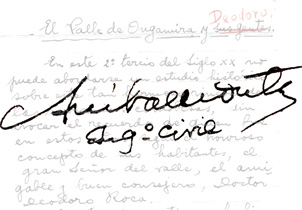 Deodoro.
El Valle de Ongamira y sus gentes.
En este 2º tercio del Siglo XX no
puede abordarse un estudio histó
sobre el
Aníbal Montes
Ing.º Civil
vocar el recuerdo de
en estos honroso
concepto de sus habitantes, el
gran Señor del valle, el ami
gable y buen consejero, Doctor
Deodoro Roca.